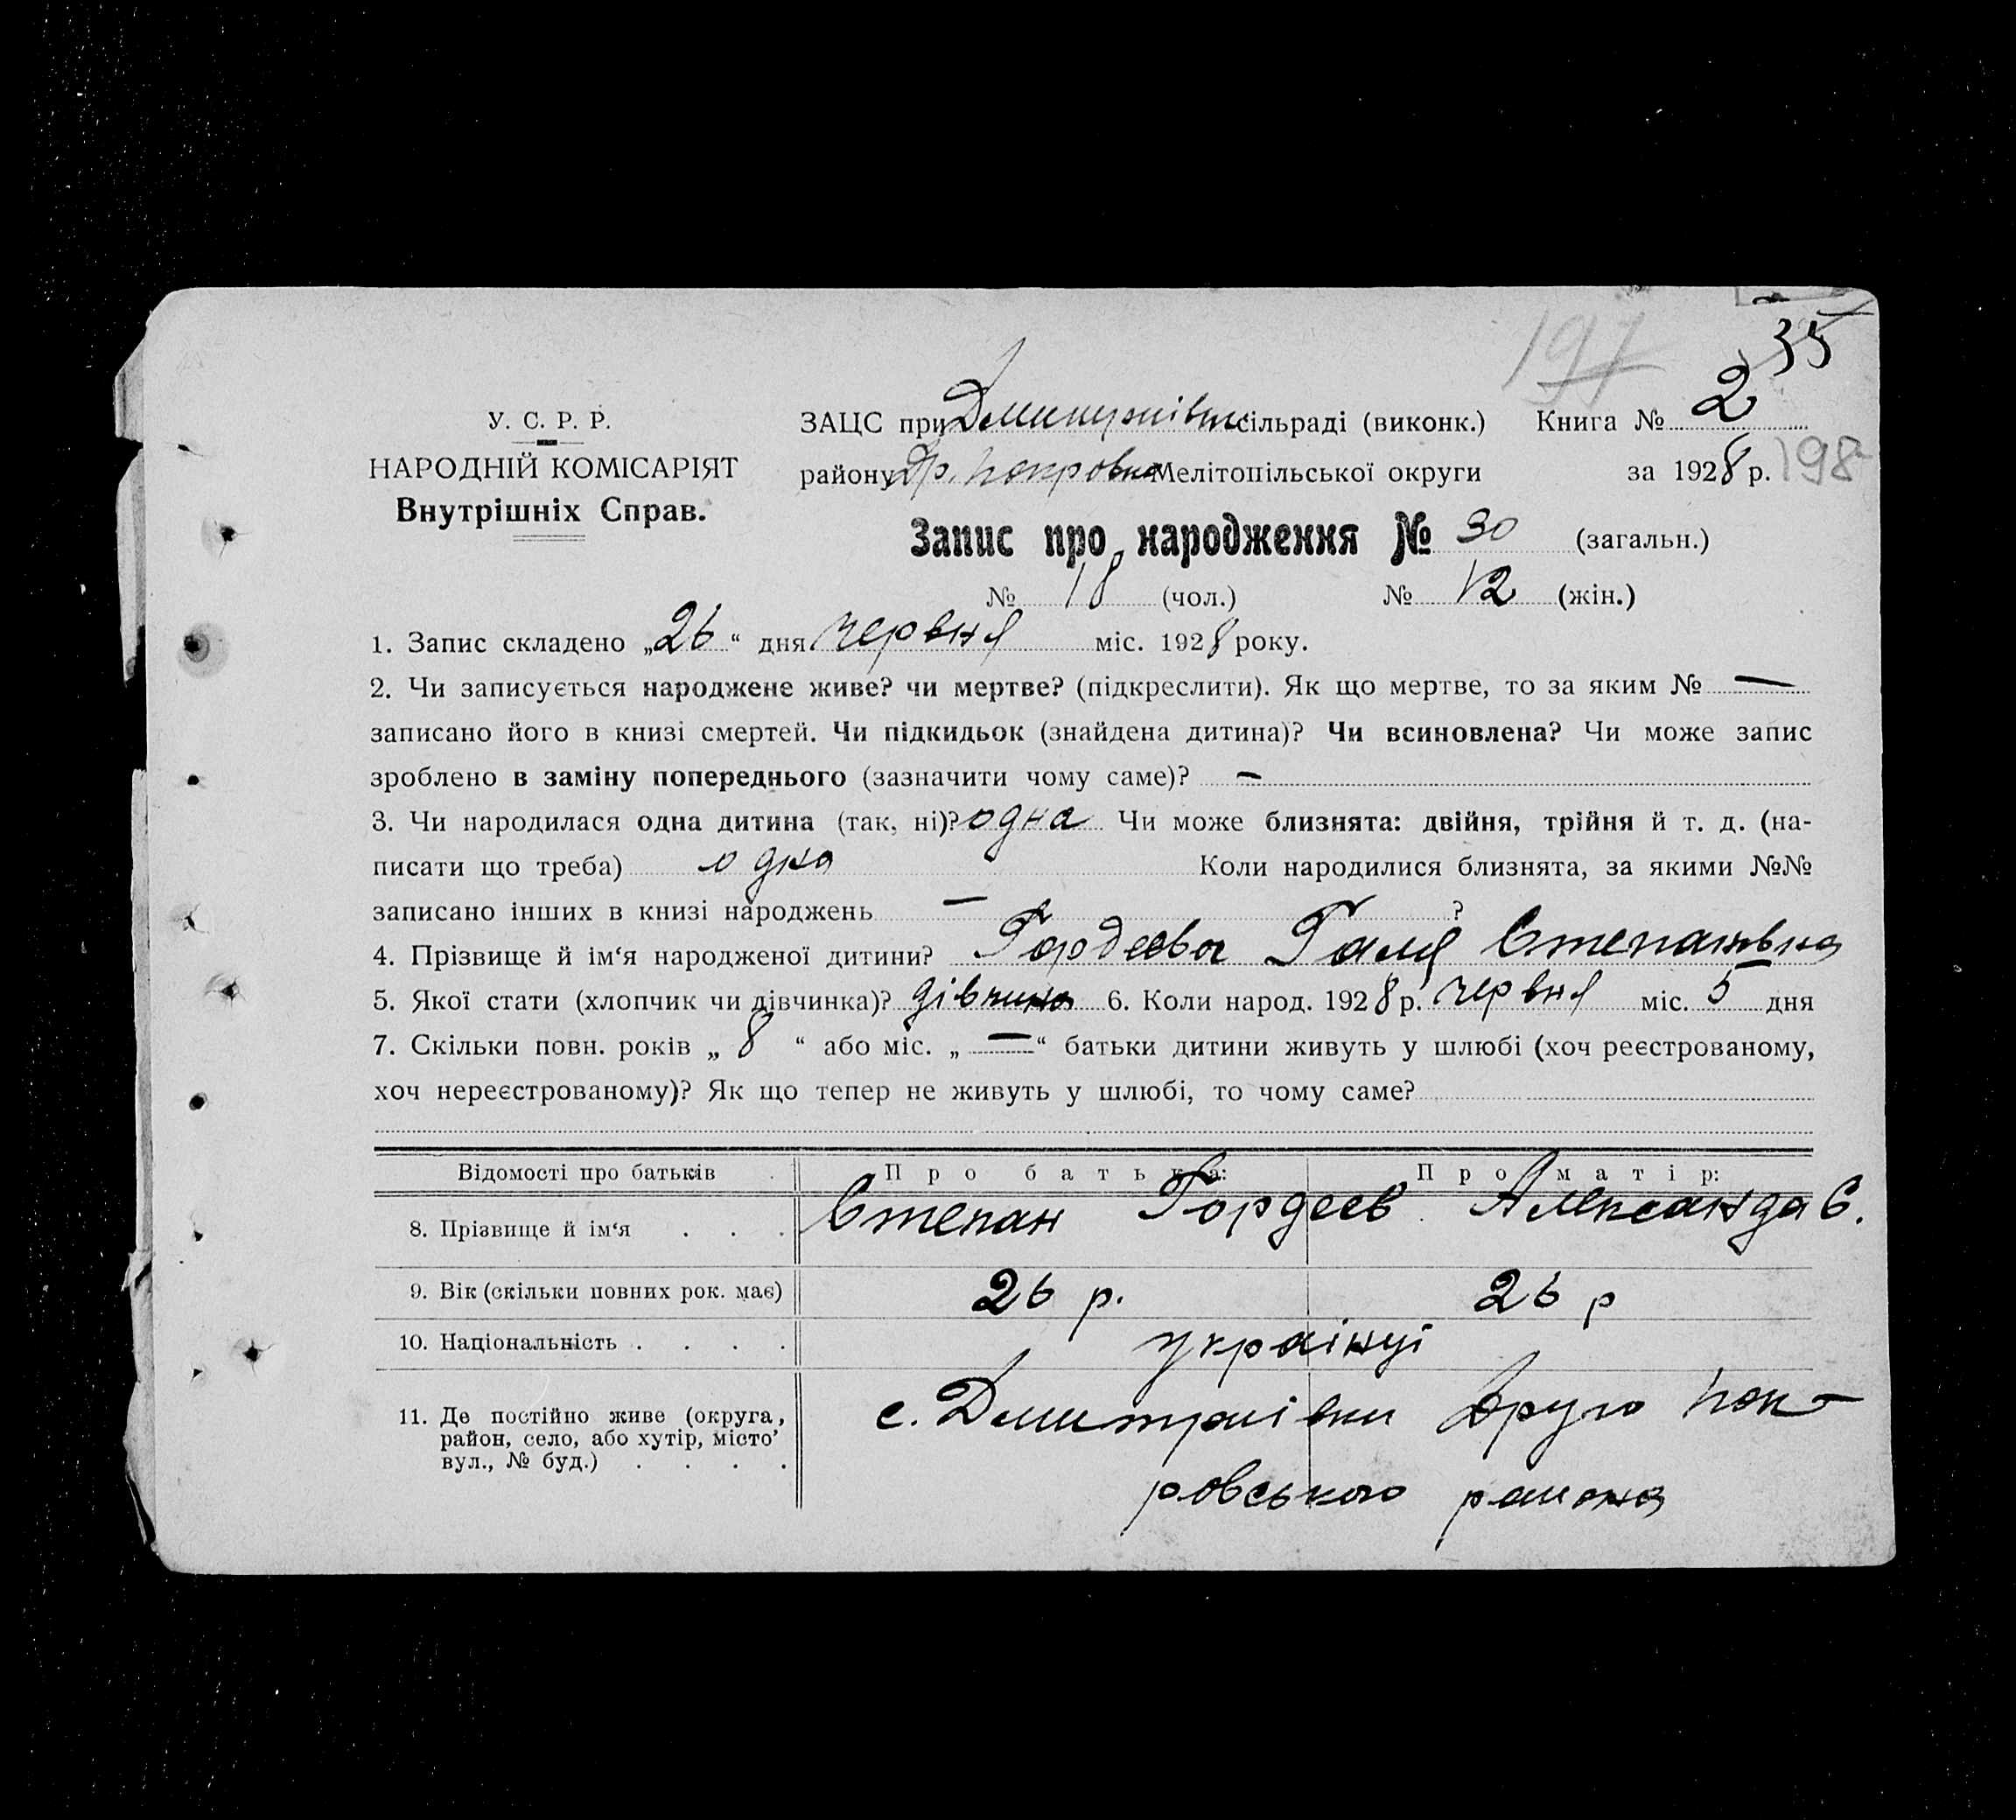 197
35
У. С. Р. Р.
НАРОДНІЙ КОМІСАРІЯТ
Внутрішніх Справ.
ЗАЦС при сільраді (виконк.) Книга № 2
району Др. Покровка Мелітопільської округи за 1928 р. 198
Запис про народження № 30 (загальн.)
№ 18 (чол.) № 12 (жін.)
1. Запис складено „26“ дня червня міс. 1928 року.
2. Чи записується народжене живе? чи мертве? (підкреслити). Як що мертве, то за яким № —
записано його в книзі смертей. Чи підкидьок (знайдена дитина)? Чи всиновлена? Чи може запис
зроблено в заміну попереднього (зазначити чому саме)? —
3. Чи народилася одна дитина (так, ні)? одна Чи може близнята: двійня, трійня й т. д. (на-
писати що треба) одна Коли народилися близнята, за якими №№
записано інших в книзі народжень — ?
4. Прізвище й ім‘я народженої дитини? Гордеева Галя Степановна
5. Якої стати (хлопчик чи дівчинка)? дівчина 6. Коли народ. 1928 р. червня міс. 5 дня
7. Скільки повн. років „ 8 “ або міс. „ — “ батьки дитини живуть у шлюбі (хоч реєстрованому,
хоч нереєстрованому)? Як що тепер не живуть у шлюбі, то чому саме?
Відомості про батьків Про батька: Про матір:
8. Прізвище й ім‘я . . . Степан Гордеев Александа С.
9. Вік (скільки повних рок. має) 26 р. 26 р
10. Національність . . . . українці
11. Де постійно живе (округа,
район, село, або хутір, місто’
вул., № буд.) . . . .
с. Дмитраівки Друго Пок-
ровського района